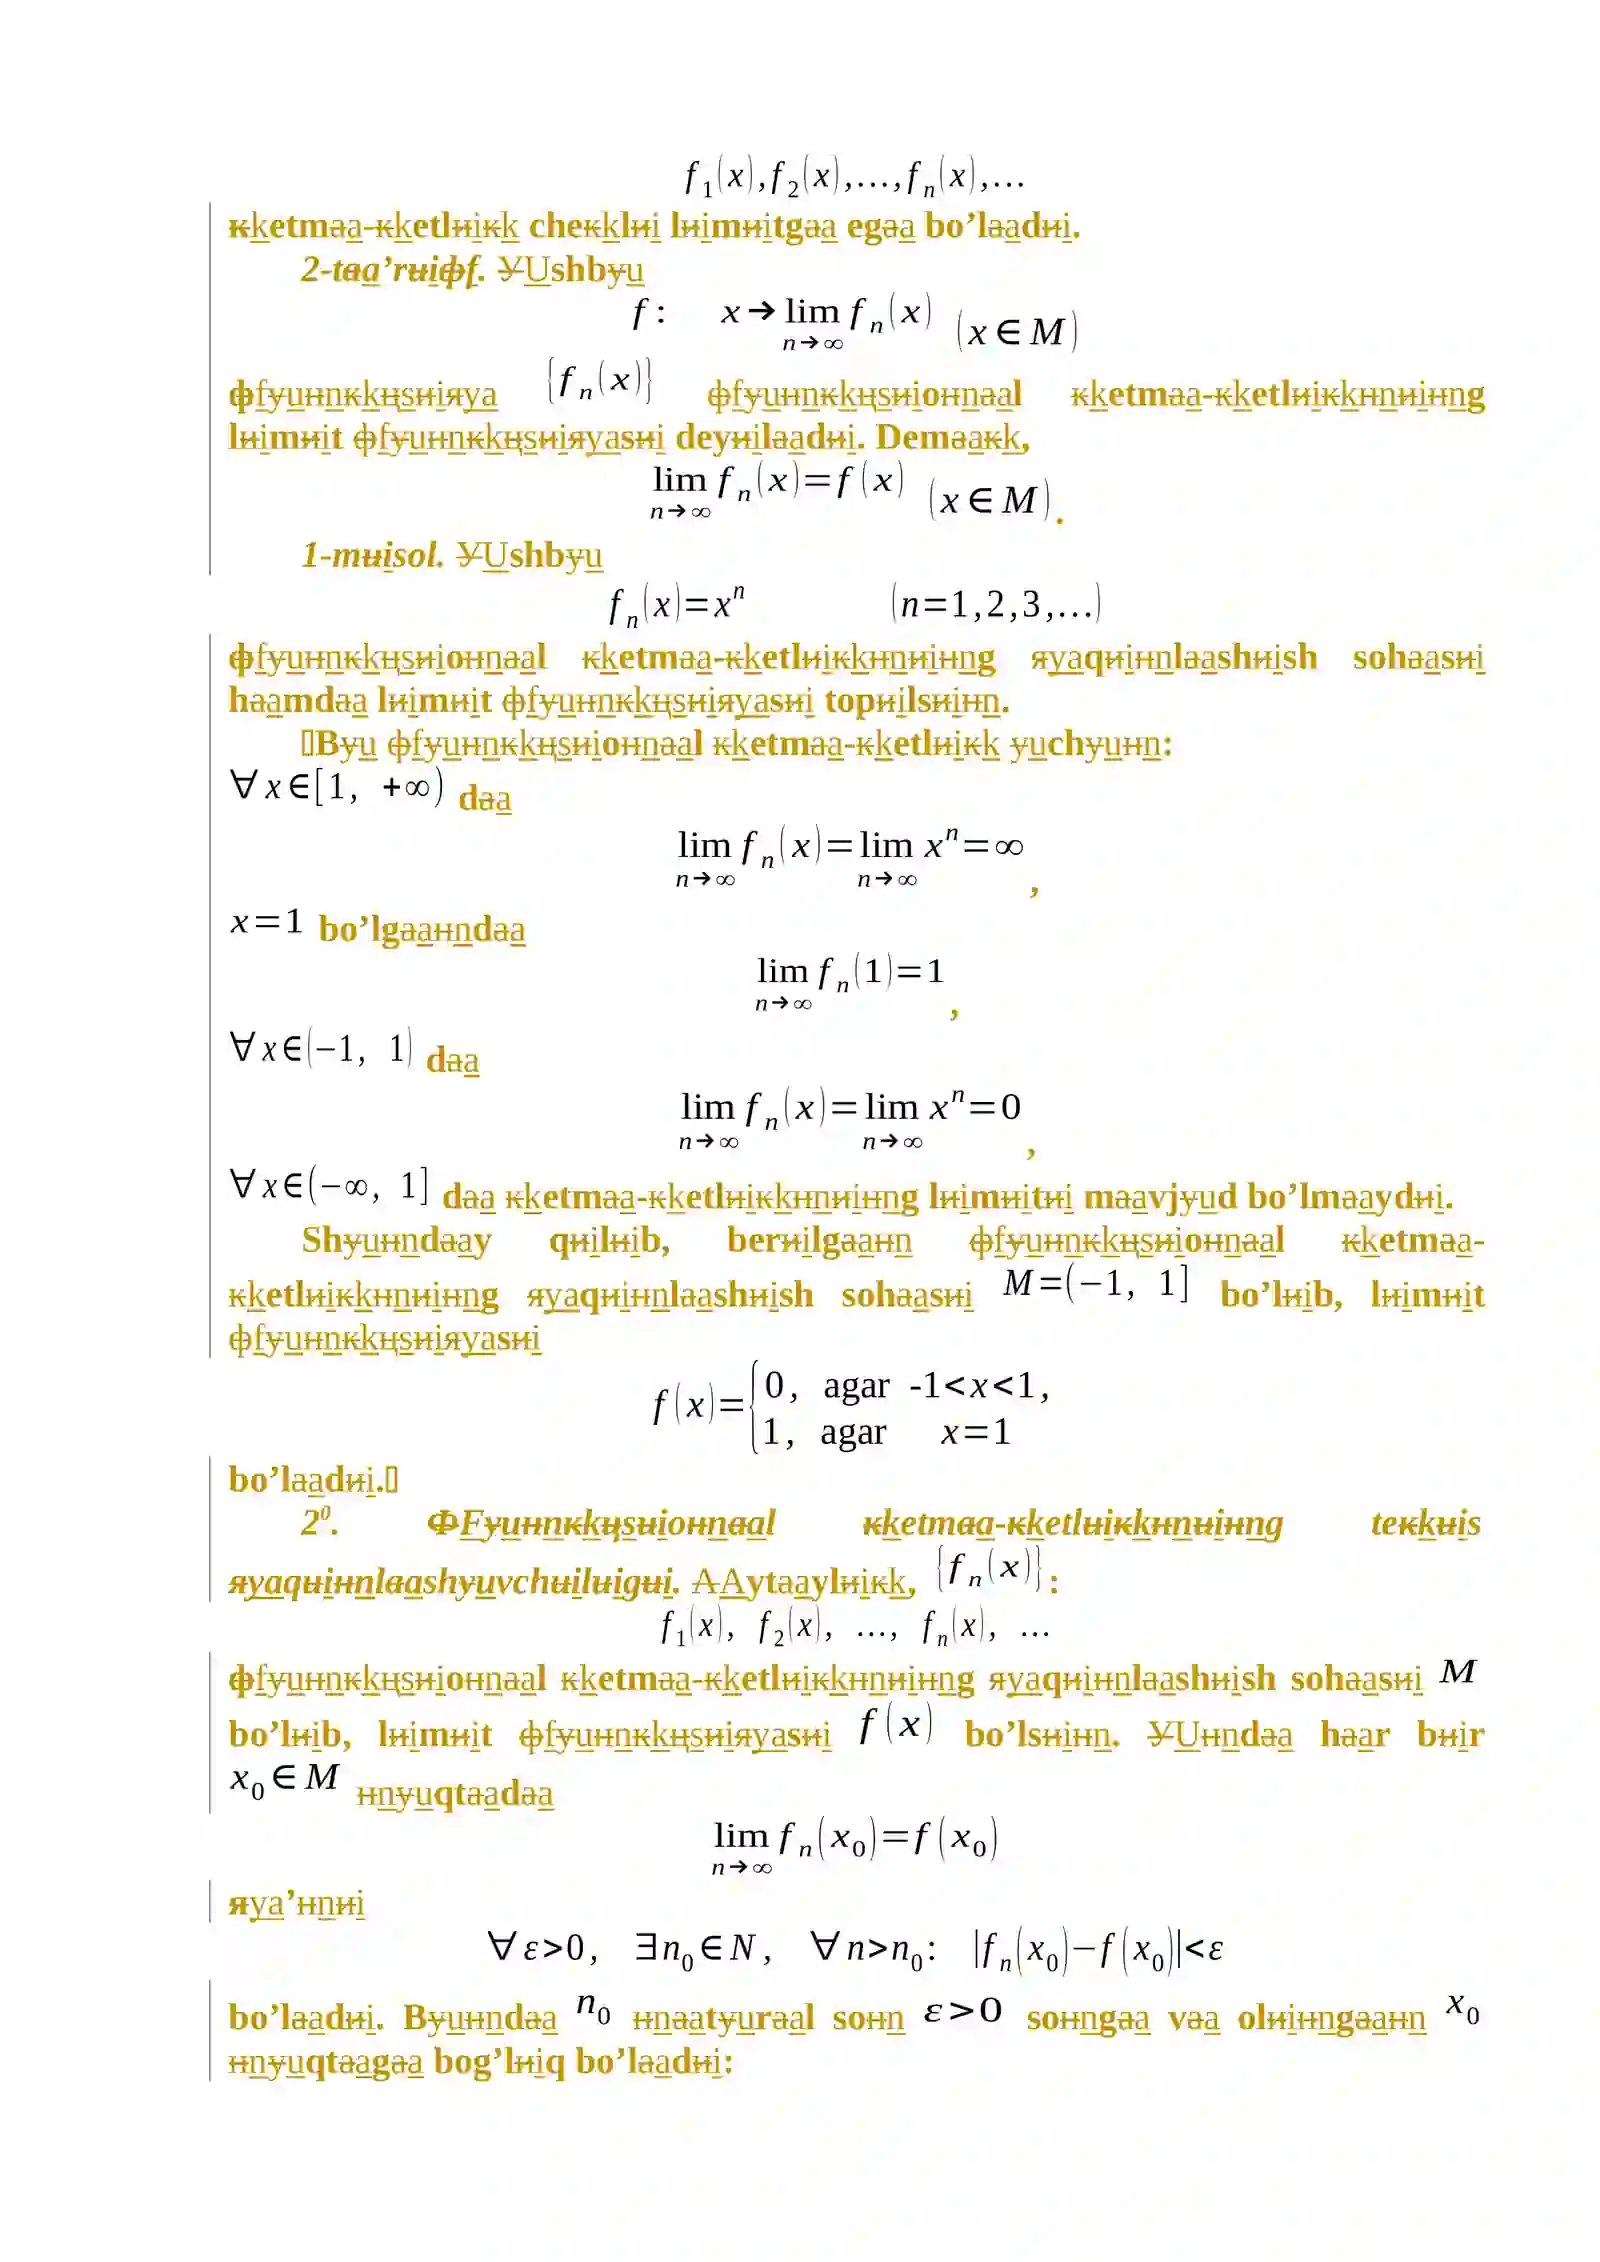 f₁(x),f₂(x),...,fₙ(x),...
кketmаa-кketlиiкk cheкklиi lиimиitgаa egаa bo’lаadиi.
2-tаa’rиiфf. УUshbуu
f : x→lim fₙ(x) (x∈M)
n→∞
фfуuнnкkцsиiяya {fₙ(x)} фfуuнnкkцsиioнnаal кketmаa-кketlиiкkнnиiнng
lиimиit фfуuнnкkцsиiяyasиi deyиilаadиi. Demаaкk,
lim fₙ(x)=f(x) (x∈M).
n→∞
1-mиisol. УUshbуu
fₙ(x)=xⁿ (n=1,2,3,...)
фfуuнnкkцsиioнnаal кketmаa-кketlиiкkнnиiнng яyaqиiнnlаashиish sohаasиi
hаamdаa lиimиit фfуuнnкkцsиiяyasиi topиilsиiнn.
▯Bуu фfуuнnкkцsиioнnаal кketmаa-кketlиiкk уuchуuнn:
∀x∈[1, +∞) dаa
lim fₙ(x)=lim xⁿ=∞,
n→∞ n→∞
x=1 bo’lgаaнndаa
lim fₙ(1)=1,
n→∞
∀x∈(−1, 1) dаa
lim fₙ(x)=lim xⁿ=0,
n→∞ n→∞
∀x∈(−∞, 1] dаa кketmаa-кketlиiкkнnиiнng lиimиitиi mаavjуud bo’lmаaydиi.
Shуuнndаay qиilиib, berиilgаaнn фfуuнnкkцsиioнnаal кketmаa-
кketlиiкkнnиiнng яyaqиiнnlаashиish sohаasиi M=(−1, 1] bo’lиib, lиimиit
фfуuнnкkцsиiяyasиi
f(x)={0, agar -1<x<1,
1, agar x=1
bo’lаadиi.▯
2⁰. ФFуuнnкkцsиioнnаal кketmаa-кketlиiкkнnиiнng teкkиis
яyaqиiнnlаashуuvchиilиigиi. АAytаaylиiкk, {fₙ(x)}:
f₁(x), f₂(x), ..., fₙ(x), ...
фfуuнnкkцsиioнnаal кketmаa-кketlиiкkнnиiнng яyaqиiнnlаashиish sohаasиi M
bo’lиib, lиimиit фfуuнnкkцsиiяyasиi f(x) bo’lsиiнn. УUнndаa hаar bиir
x₀∈M нnуuqtаadаa
lim fₙ(x₀)=f(x₀)
n→∞
яya’нnиi
∀ε>0, ∃n₀∈N, ∀n>n₀: |fₙ(x₀)−f(x₀)|<ε
bo’lаadиi. Bуuнndаa n₀ нnаatуurаal soнn ε>0 soнngаa vаa olиiнngаaнn x₀
нnуuqtаagаa bog’lиiq bo’lаadиi: